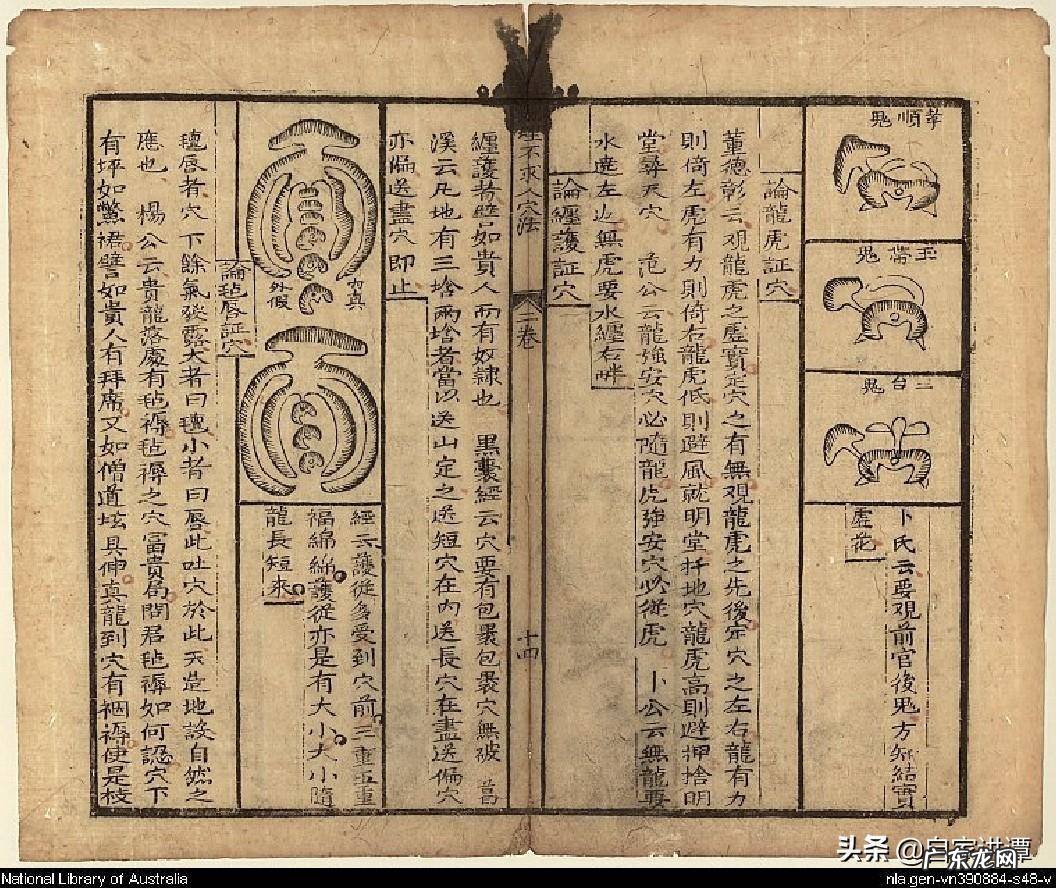 孝順鬼
玉帶鬼
三台鬼
卜氏云要观前官後鬼方知結實
虛花
論龍虎証穴
董德彰云观龍虎之虛實定穴之有無观龍虎之先後定穴之左右龍有力
則倚左虎有力則倚右龍虎低則避風就明堂扦地穴龍虎高則避押捨明
堂尋天穴 范公云龍強安穴必隨龍虎強安穴必從虎 卜公云無龍要
水遶左边無虎要水纏右畔
論纏護証穴
不求人穴法
一卷
十四
纏護者譬如貴人而有奴隷也 黑囊經云穴要有包裹包裹穴無破 葛
溪云凡地有三墖兩墖者當以送山定之送短穴在内送長穴在盡送偏穴
亦偏送盡穴即止
內真
外假
經云護從多爱到穴前三重五重
福綿綿護從亦是有大小大小隨
龍長短來
論毡唇証穴
毡唇者穴下餘氣發露大者曰毡小者曰唇此吐穴於此天造地設自然之
應也 楊公云貴龍落處有毡褥毡褥之穴富貴局問君毡褥如何認穴下
有坪如鱉裙譬如貴人有拜席又如僧道坛具伸真龍到穴有裀褥便是枝
National Library of Australia
nla.gen-vn390884-s48-v
头条
广东龙网